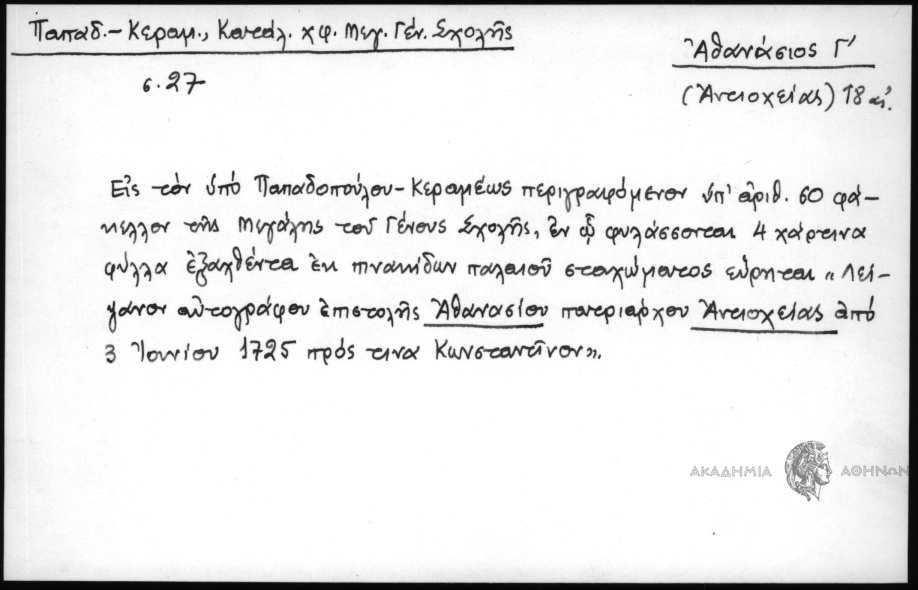 Παπαδ.-Κεραμ., Κατάλ. χφ. Μεγ. Γέν. Σχολῆς
σ. 27
Ἀθανάσιος Γ'
(Ἀντιοχείας) 18 αἰ.
Εἰς τὸν ὑπό Παπαδοπούλου-Κεραμέως περιγραφόμενον ὑπ' ἀριθ. 60 φά-
κελλον τῆς Μεγάλης τοῦ Γένους Σχολῆς, ἐν ᾧ φυλάσσονται 4 χάρτινα
φύλλα ἐξαχθέντα ἐκ πινακίδων παλαιοῦ σταχώματος εὕρηται «Λεί-
ψανον αὐτογράφου ἐπιστολῆς Ἀθανασίου πατριάρχου Ἀντιοχείας ἀπό
3 Ἰουνίου 1725 πρός τινα Κωνσταντῖνον».
ΑΚΑΔΗΜΙΑ ΑΘΗΝΩΝ